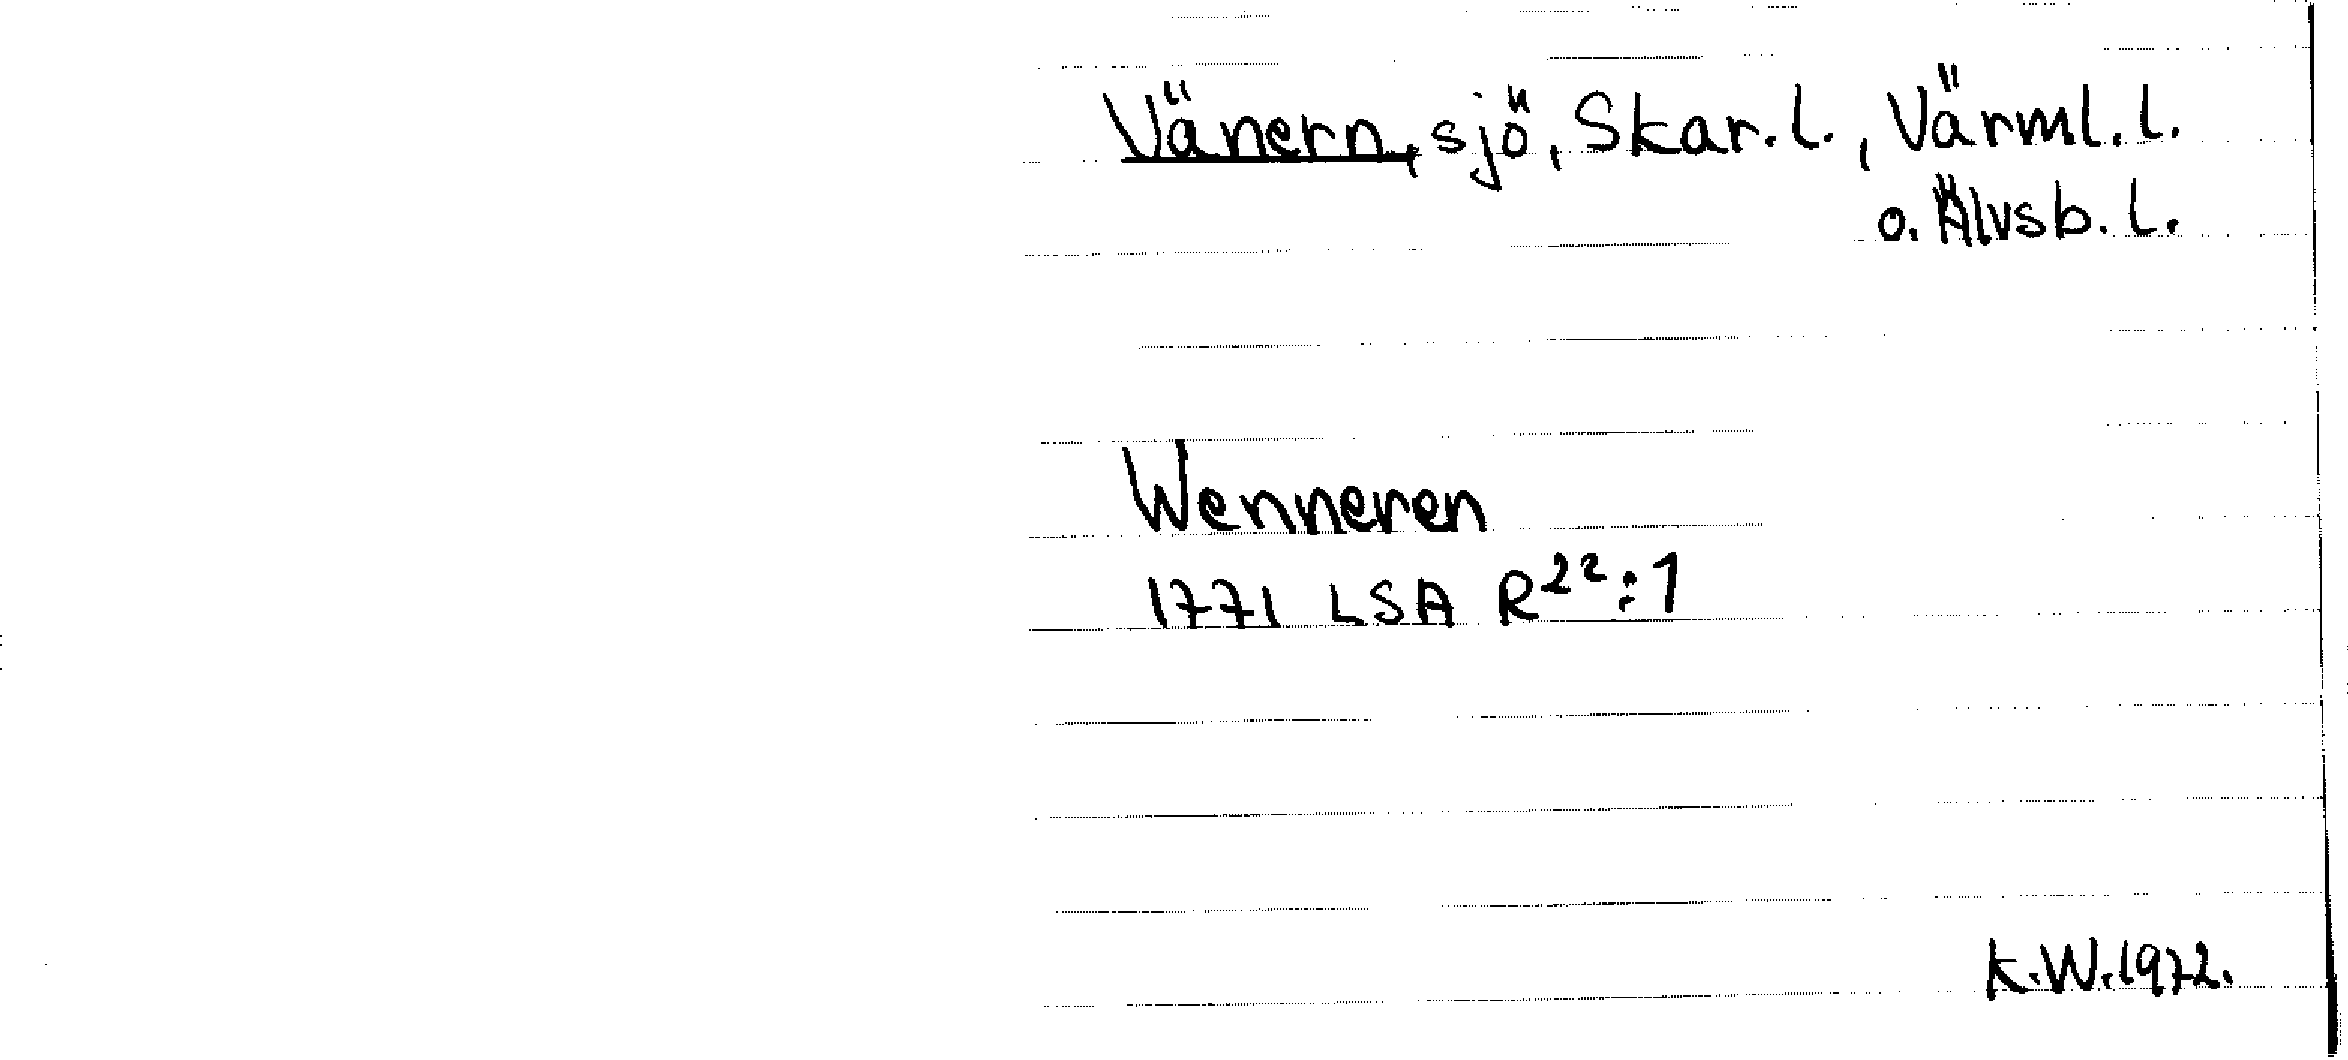 Vänern, sjö, Skar. l., Värml. l.
o. Älvsb. l.
Wenneren
1771 LSA R22:1
K.W. 1972.